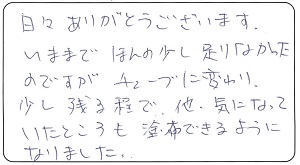 日々ありがとうございます.
いままで ほんの少し足りなかった
のですが チューブに変わり、
少し残る程で、他・気になって
いたところも 塗布できるように
なりました..